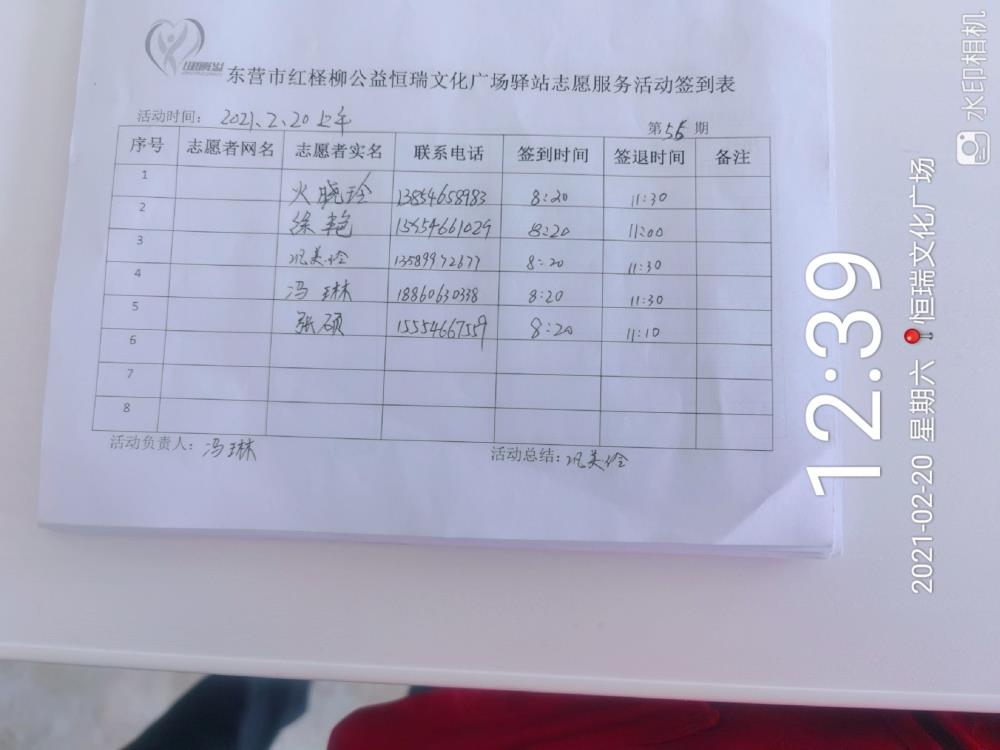 东营市红柽柳公益恒瑞文化广场驿站志愿服务活动签到表
活动时间: 2021、2、20 上午 第 56 期
序号 志愿者网名 志愿者实名 联系电话 签到时间 签退时间 备注
1 火晓玲 13854658983 8:20 11:30
2 徐艳 15454661029 8:20 11:00
3 巩美伶 13589972677 8:20 11:30
4 冯琳 18860630338 8:20 11:30
5 张硕 15554667559 8:20 11:10
6
7
8
活动负责人: 冯琳 活动总结: 巩美伶
12:39
2021-02-20 星期六 恒瑞文化广场
水印相机